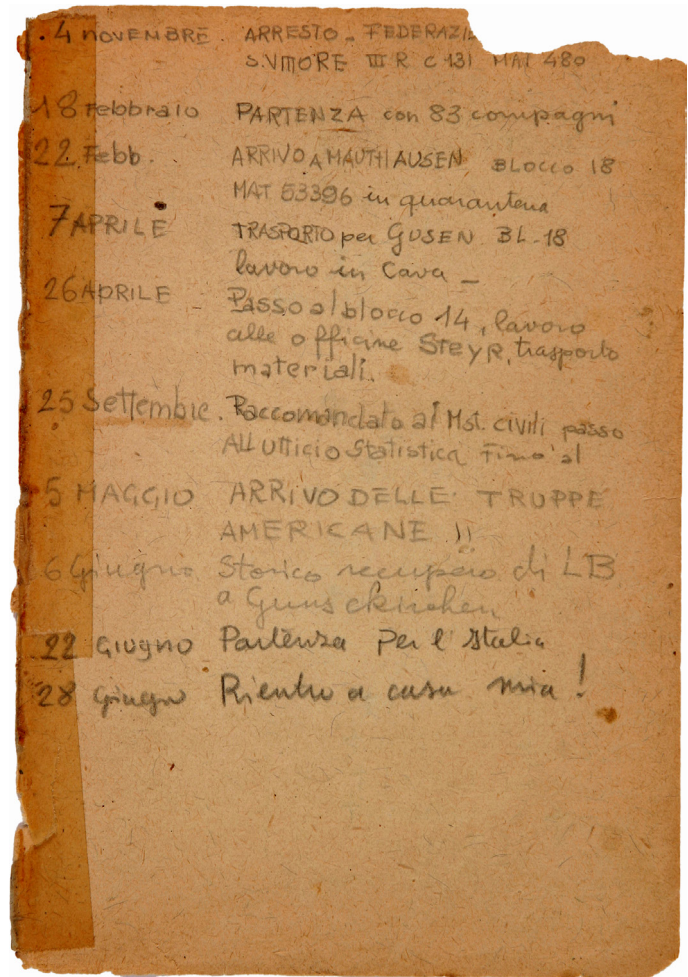 4 NOVEMBRE. ARRESTO - FEDERAZI
S. VITTORE III R C 131 MAT 480
18 Febbraio PARTENZA con 83 compagni
22 Febb. ARRIVO A MAUTHAUSEN BLOCCO 18
MAT 53396 in quarantena
7 APRILE TRASPORTO per GUSEN BL-18
lavoro in Cava -
26 APRILE Passo al blocco 14, lavoro
alle officine STEYR, trasporto
materiali.
25 Settembre. Raccomandato ai Mst. civili passo
All ufficio Statistica Fino al
5 MAGGIO ARRIVO DELLE TRUPPE
AMERICANE !!
6 Giugno Storico recupero di LB
a Gunskirchen
22 GIUGNO Partenza per l'Italia
28 Giugno Rientro a casa mia!